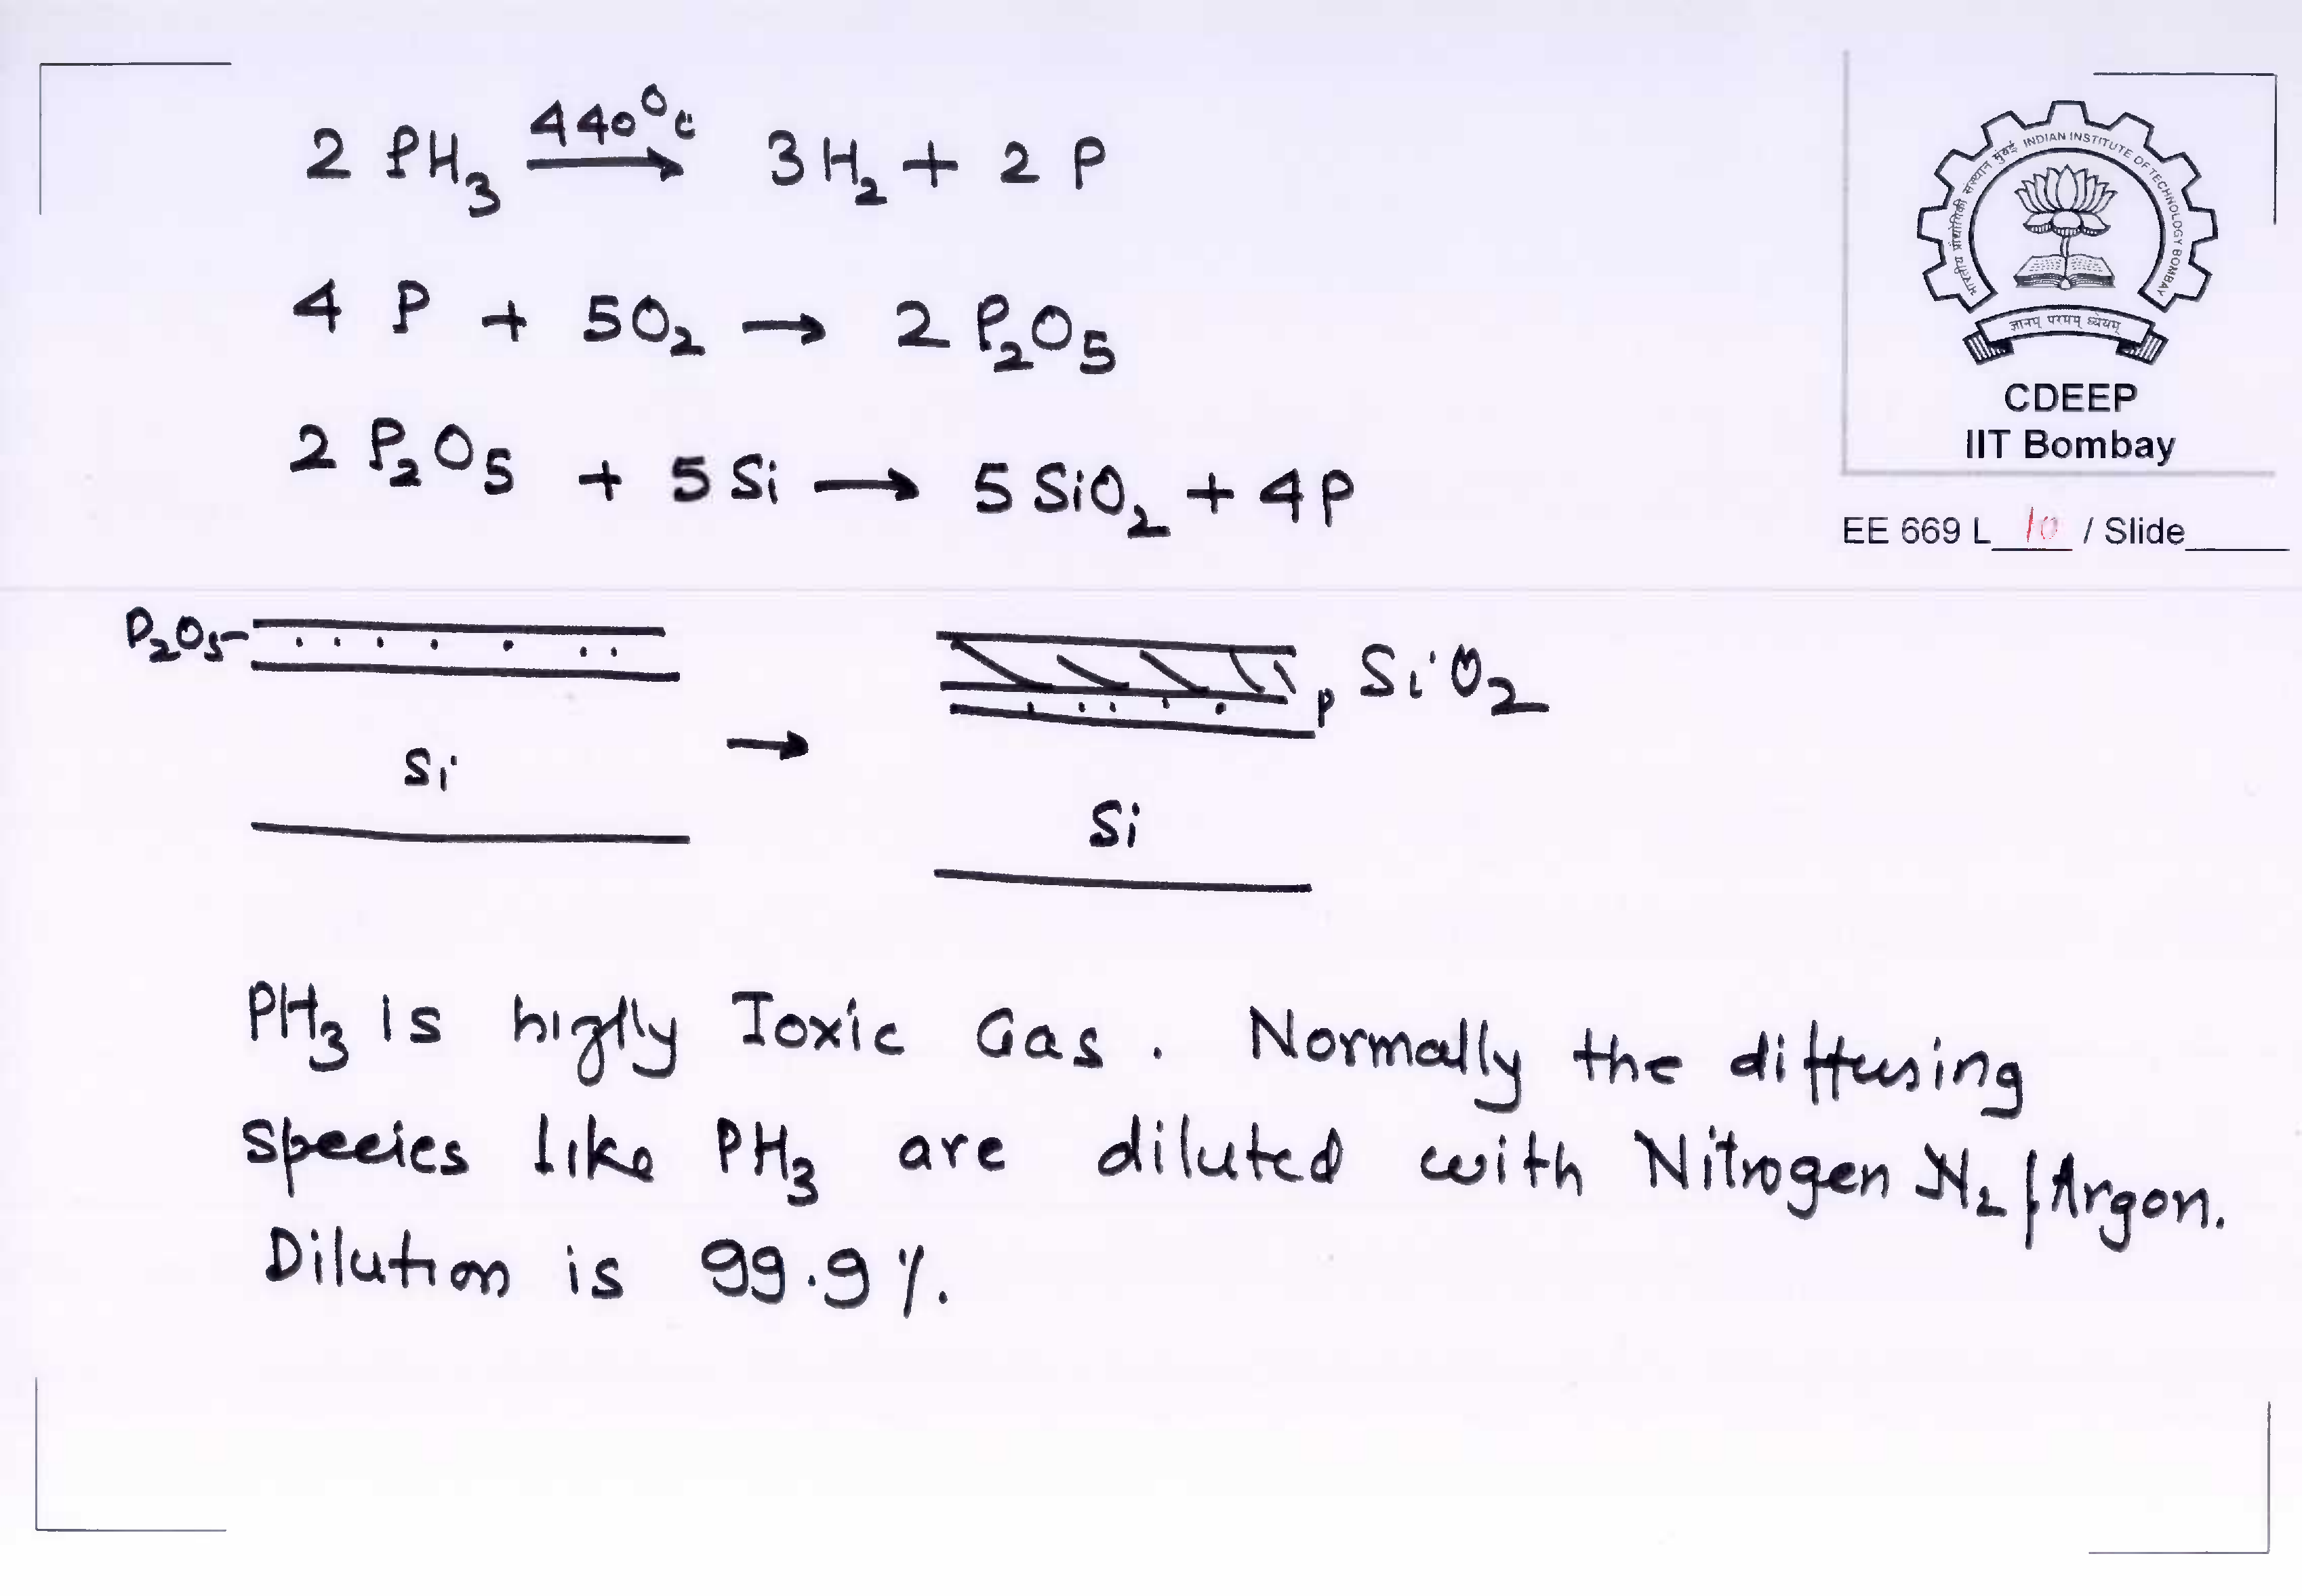 2 PH₃ —440°C→ 3H₂ + 2 P
4 P + 5O₂ → 2 P₂O₅
2 P₂O₅ + 5 Si → 5 SiO₂ + 4P
भारतीय प्रौद्योगिकी संस्थान मुंबई INDIAN INSTITUTE OF TECHNOLOGY BOMBAY
ज्ञानम् परमम् ध्येयम्
CDEEP
IIT Bombay
EE 669 L 10 / Slide
P₂O₅
Si
→
SiO₂
P
Si
PH₃ is higlly Toxic Gas. Normally the diffusing
species like PH₃ are diluted with Nitrogen N₂ / Argon.
Dilution is 99.9 %.